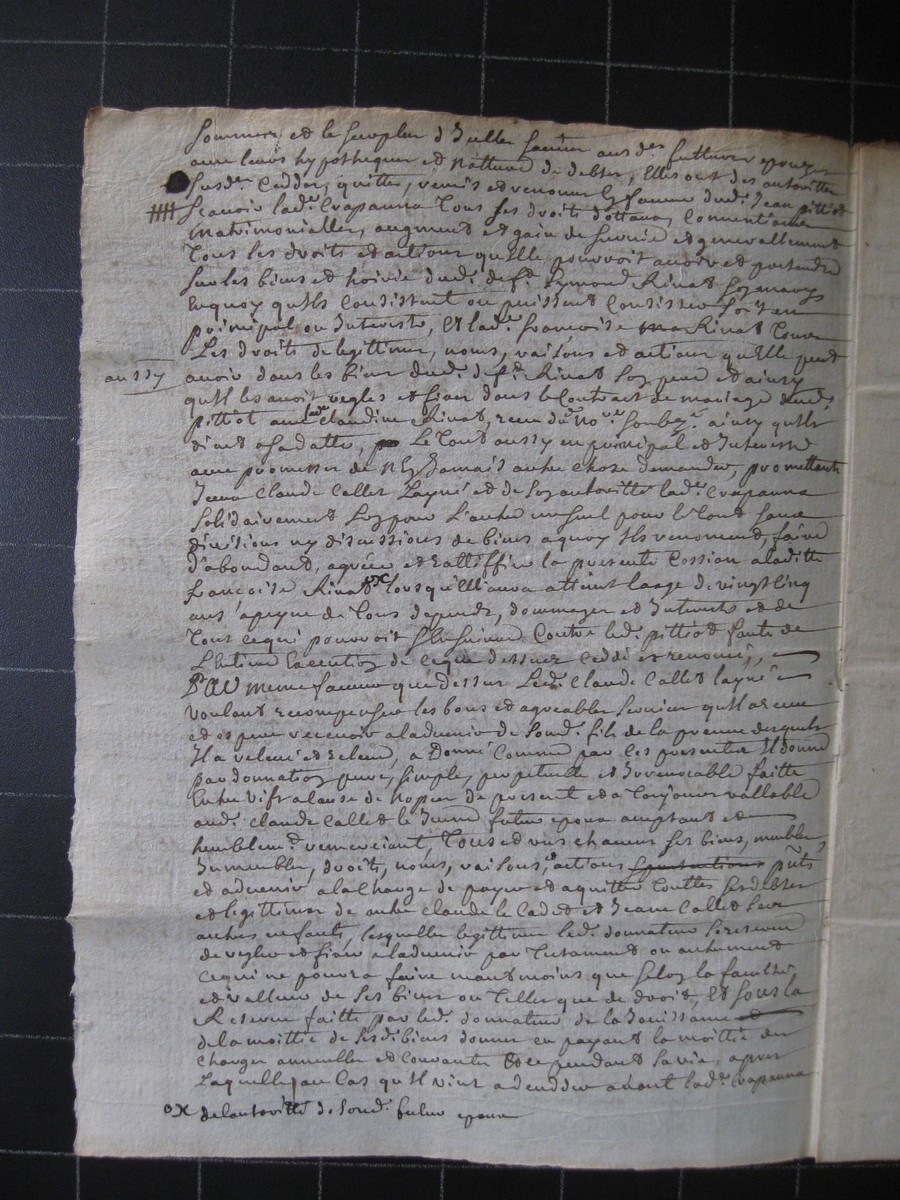 sommes et le surplus d'Icelles ausd. futturs epoux
avec leurs hypotheques et natture de debtes, Elles ont des autorittes
susd. ceddér, quitter, remis et renoncé En faveur dud. Jean pittiot
scavoir lad. Crapanna Tous ses droits dottaux, Conventiaux
Matrimoniales, augment et gain de survie et generallement
Tous les droits et actions qu'elle pouvroit avoir et pretendre
sur les biens et hoirie dud. def. Eymond Rinat son mary
En quoy qu'ils Consistent ou puissent Consister soit en
principal ou Interests, Et lad. francoise Rinat Tous
Les droits de legittimes, noms, raisons et actions qu'Elle peut
aussy
avoir dans les biens dud. def. Rinat son pere et ainsy
qu'Il les avoit regles et fixé dans le Contract de mariage dud.
pittiot avec lad. Claudine Rinat, receu dud. no.re soubz.é ainsy qu'Ils
dint a sa datte, Le Tout aussy en principal et Interests
avec promesses de n'En Jamais autre chose demander, promettants
Claude Callet Layné et de son autoritté lad. Crapanna
solidairement L'un pour L'autre un seul pour le Tout sans
divisions ny discussions de biens a quoy Ils renoncent, faire
d'abondant, agréer et Rattiffier la presente Cession a laditte
francoise Rinat ox lorsqu'Ell'aura atteint laage de vingt Cinq
ans a peyne de Tous depends, dommages et Interests et de
Tout ce qui pouvroit s'En suivre Contre led. pittiot faute de
L'Entiere Execution de ce que dessus Ceddé et renoncé,
Au meme faveur que dessus Led. Claude Callet layné
voulant recompenser les bons et agreables services qu'Il a receu
et espere recevoir a ladvenir de Soud. fils de la preuve desquels
Il a relevé et releve, a Donné Comme par ces presentes Il donne
par donnation pure, simple, perpetuelle et Irrevocable faitte
Entre vifs a Cause de nopces de present et a Toujours vallable
aud. claude Callet le Jeune futur epoux acceptant et
humblem.t remerciant, Tous et uns chacuns ses biens, meubles,
Immeubles, droits, noms, raisons, actions pñts
et advenir a la Charge de payer et aquitter Touttes ses debtes
et legittimes de autre claude le Cadet et Jeane Callet ses
autres enfants, lesquelles legittimes led. donnateur se reserve
de regler et fixer a ladvenir par Testament ou autrement
ce qui ne pouvra faire neantmoins que selon la faculté
et valleur de ses biens ou Telles que de droit, Et sous la
Reserve faitte par led. donnateur de la Jouissance
de la moittié de sesd. biens donnés en payant la moittié des
charges annuelles et Courantes pendant sa vie, apres
Laquelle au Cas qu'Il vint a decedder avant lad. Crapanna
ox de lautoritté de soud. futur epoux